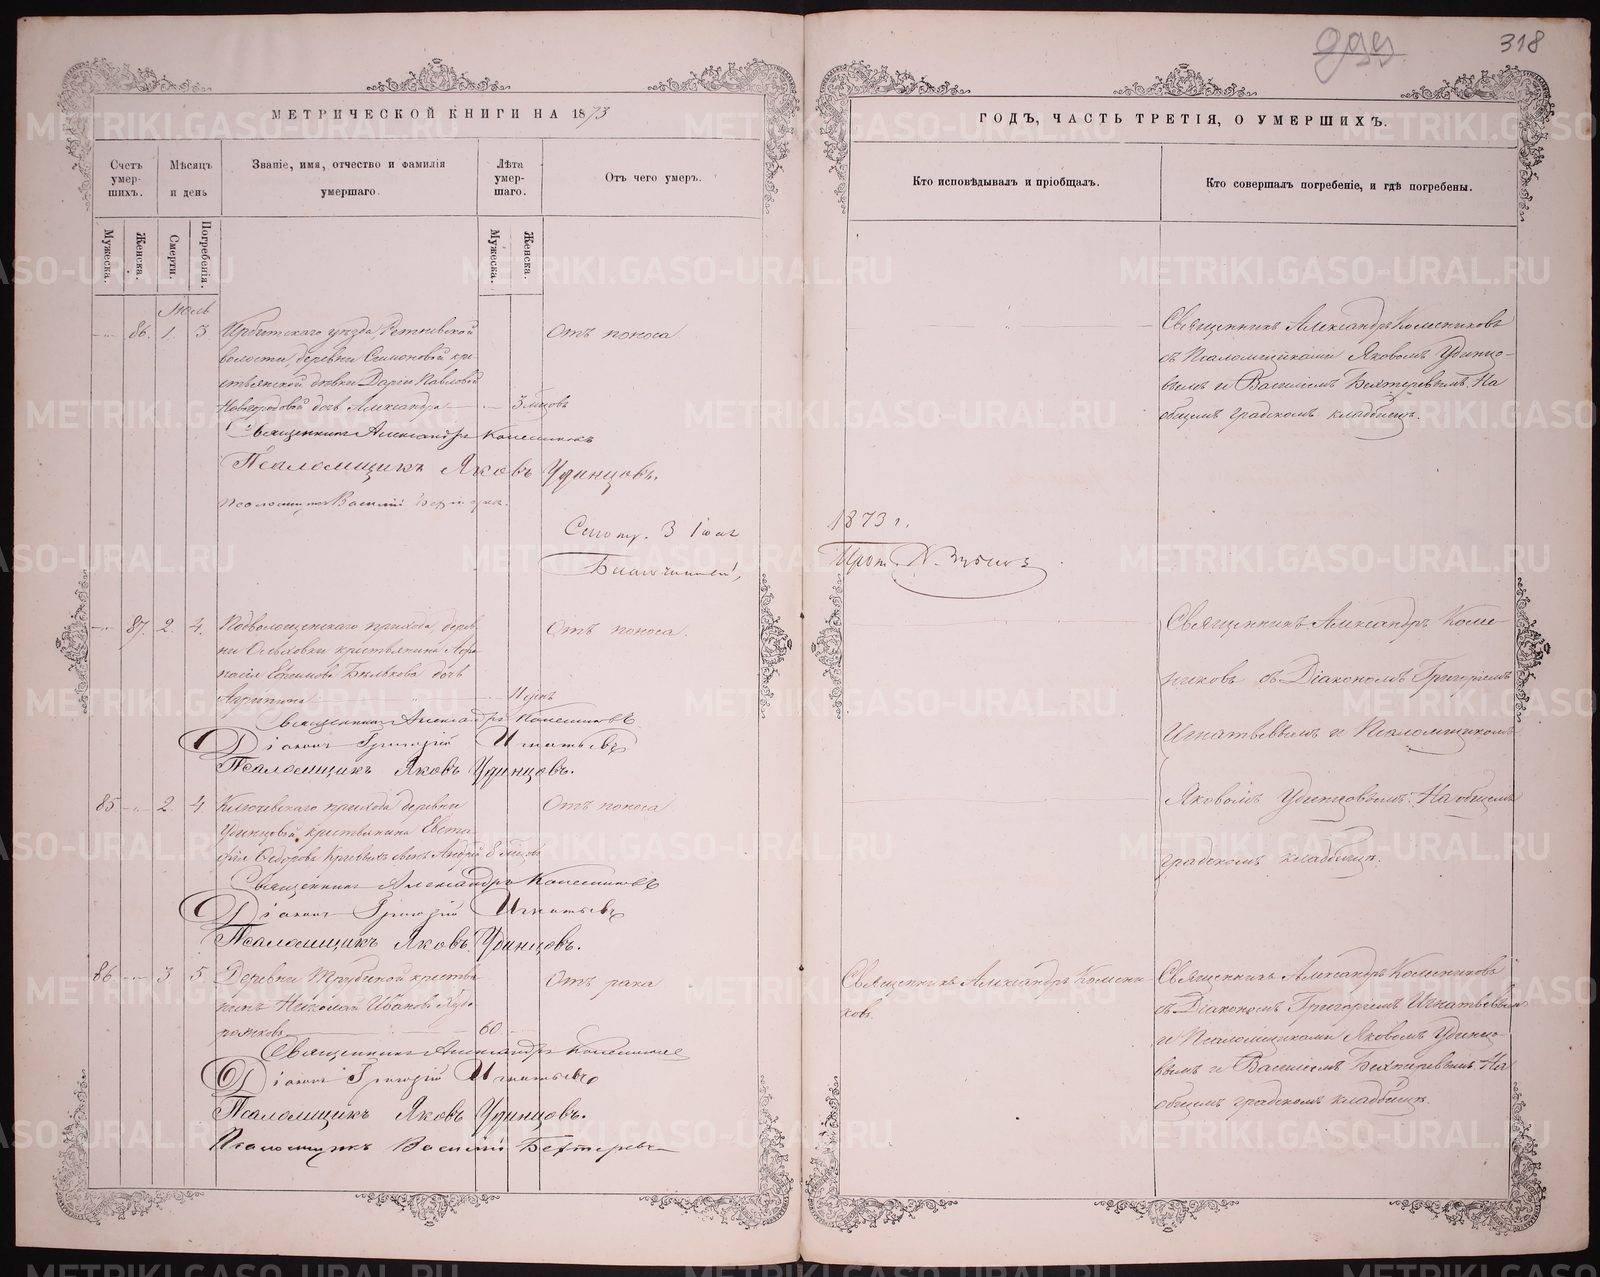 318
МЕТРИЧЕСКОЙ КНИГИ НА 1873
ГОДЪ, ЧАСТЬ ТРЕТІЯ, О УМЕРШИХЪ.
Счетъ умер-шихъ.
Мѣсяцъ и день
Званіе, имя, отчество и фамилія умершаго.
Лѣта умер-шаго.
Отъ чего умеръ.
Кто исповѣдывалъ и пріобщалъ.
Кто совершалъ погребеніе, и гдѣ погребены.
Мужеска.
Женска.
Смерти.
Погребенія.
Мужеска.
Женска.
Іюль
86. 1. 3 Ирбитскаго уѣзда, волости, деревни Симоновой кре-
стьянской дѣвки Даріи Павловой
дочь Александра 3 мѣсяцовъ
Отъ поноса
Священникъ Александръ Колесниковъ
Псаломщикъ Яковъ Удинцовъ.
Псаломщикъ Василій
Священникъ Александръ Колесниковъ
съ Псаломщиками Яковомъ Удинцо-
вымъ и Василіемъ Бехтеревымъ. На
общемъ градскомъ кладбищѣ.
3 Іюля
1873 г.
Благочинный,
Прот.
87. 2. 4. Подволошенскаго прихода дерев-
ни Ольховки крестьянина Афа-
насія дочь
Агрипина
Отъ поноса.
Священникъ Александръ Колесниковъ
Діаконъ Григорій Игнатьевъ
Псаломщикъ Яковъ Удинцовъ.
Священникъ Александръ Колес-
никовъ съ Діакономъ Григоріемъ
Игнатьевымъ и Псаломщикомъ
Яковомъ Удинцовымъ. На общемъ
градскомъ кладбищѣ.
85 2. 4. Ключевскаго прихода деревни
Удинцовой крестьянина Евста-
фія Ѳедорова сынъ Андрей 8
Отъ поноса
Священникъ Александръ Колесниковъ
Діаконъ Григорій Игнатьевъ
Псаломщикъ Яковъ Удинцовъ.
86 3 5. Деревни Трубиной крестья-
нинъ Николай Ивановъ
60
Отъ рака
Священникъ Александръ Колесниковъ
Діаконъ Григорій Игнатьевъ
Псаломщикъ Яковъ Удинцовъ.
Псаломщикъ Василій Бехтеревъ
Священникъ Александръ Колесни-
ковъ.
Священникъ Александръ Колесниковъ
съ Діакономъ Григоріемъ Игнатьевымъ
и Псаломщиками Яковомъ Удинцо-
вымъ и Василіемъ Бехтеревымъ. На
общемъ градскомъ кладбищѣ.
METRIKI.GASO-URAL.RU